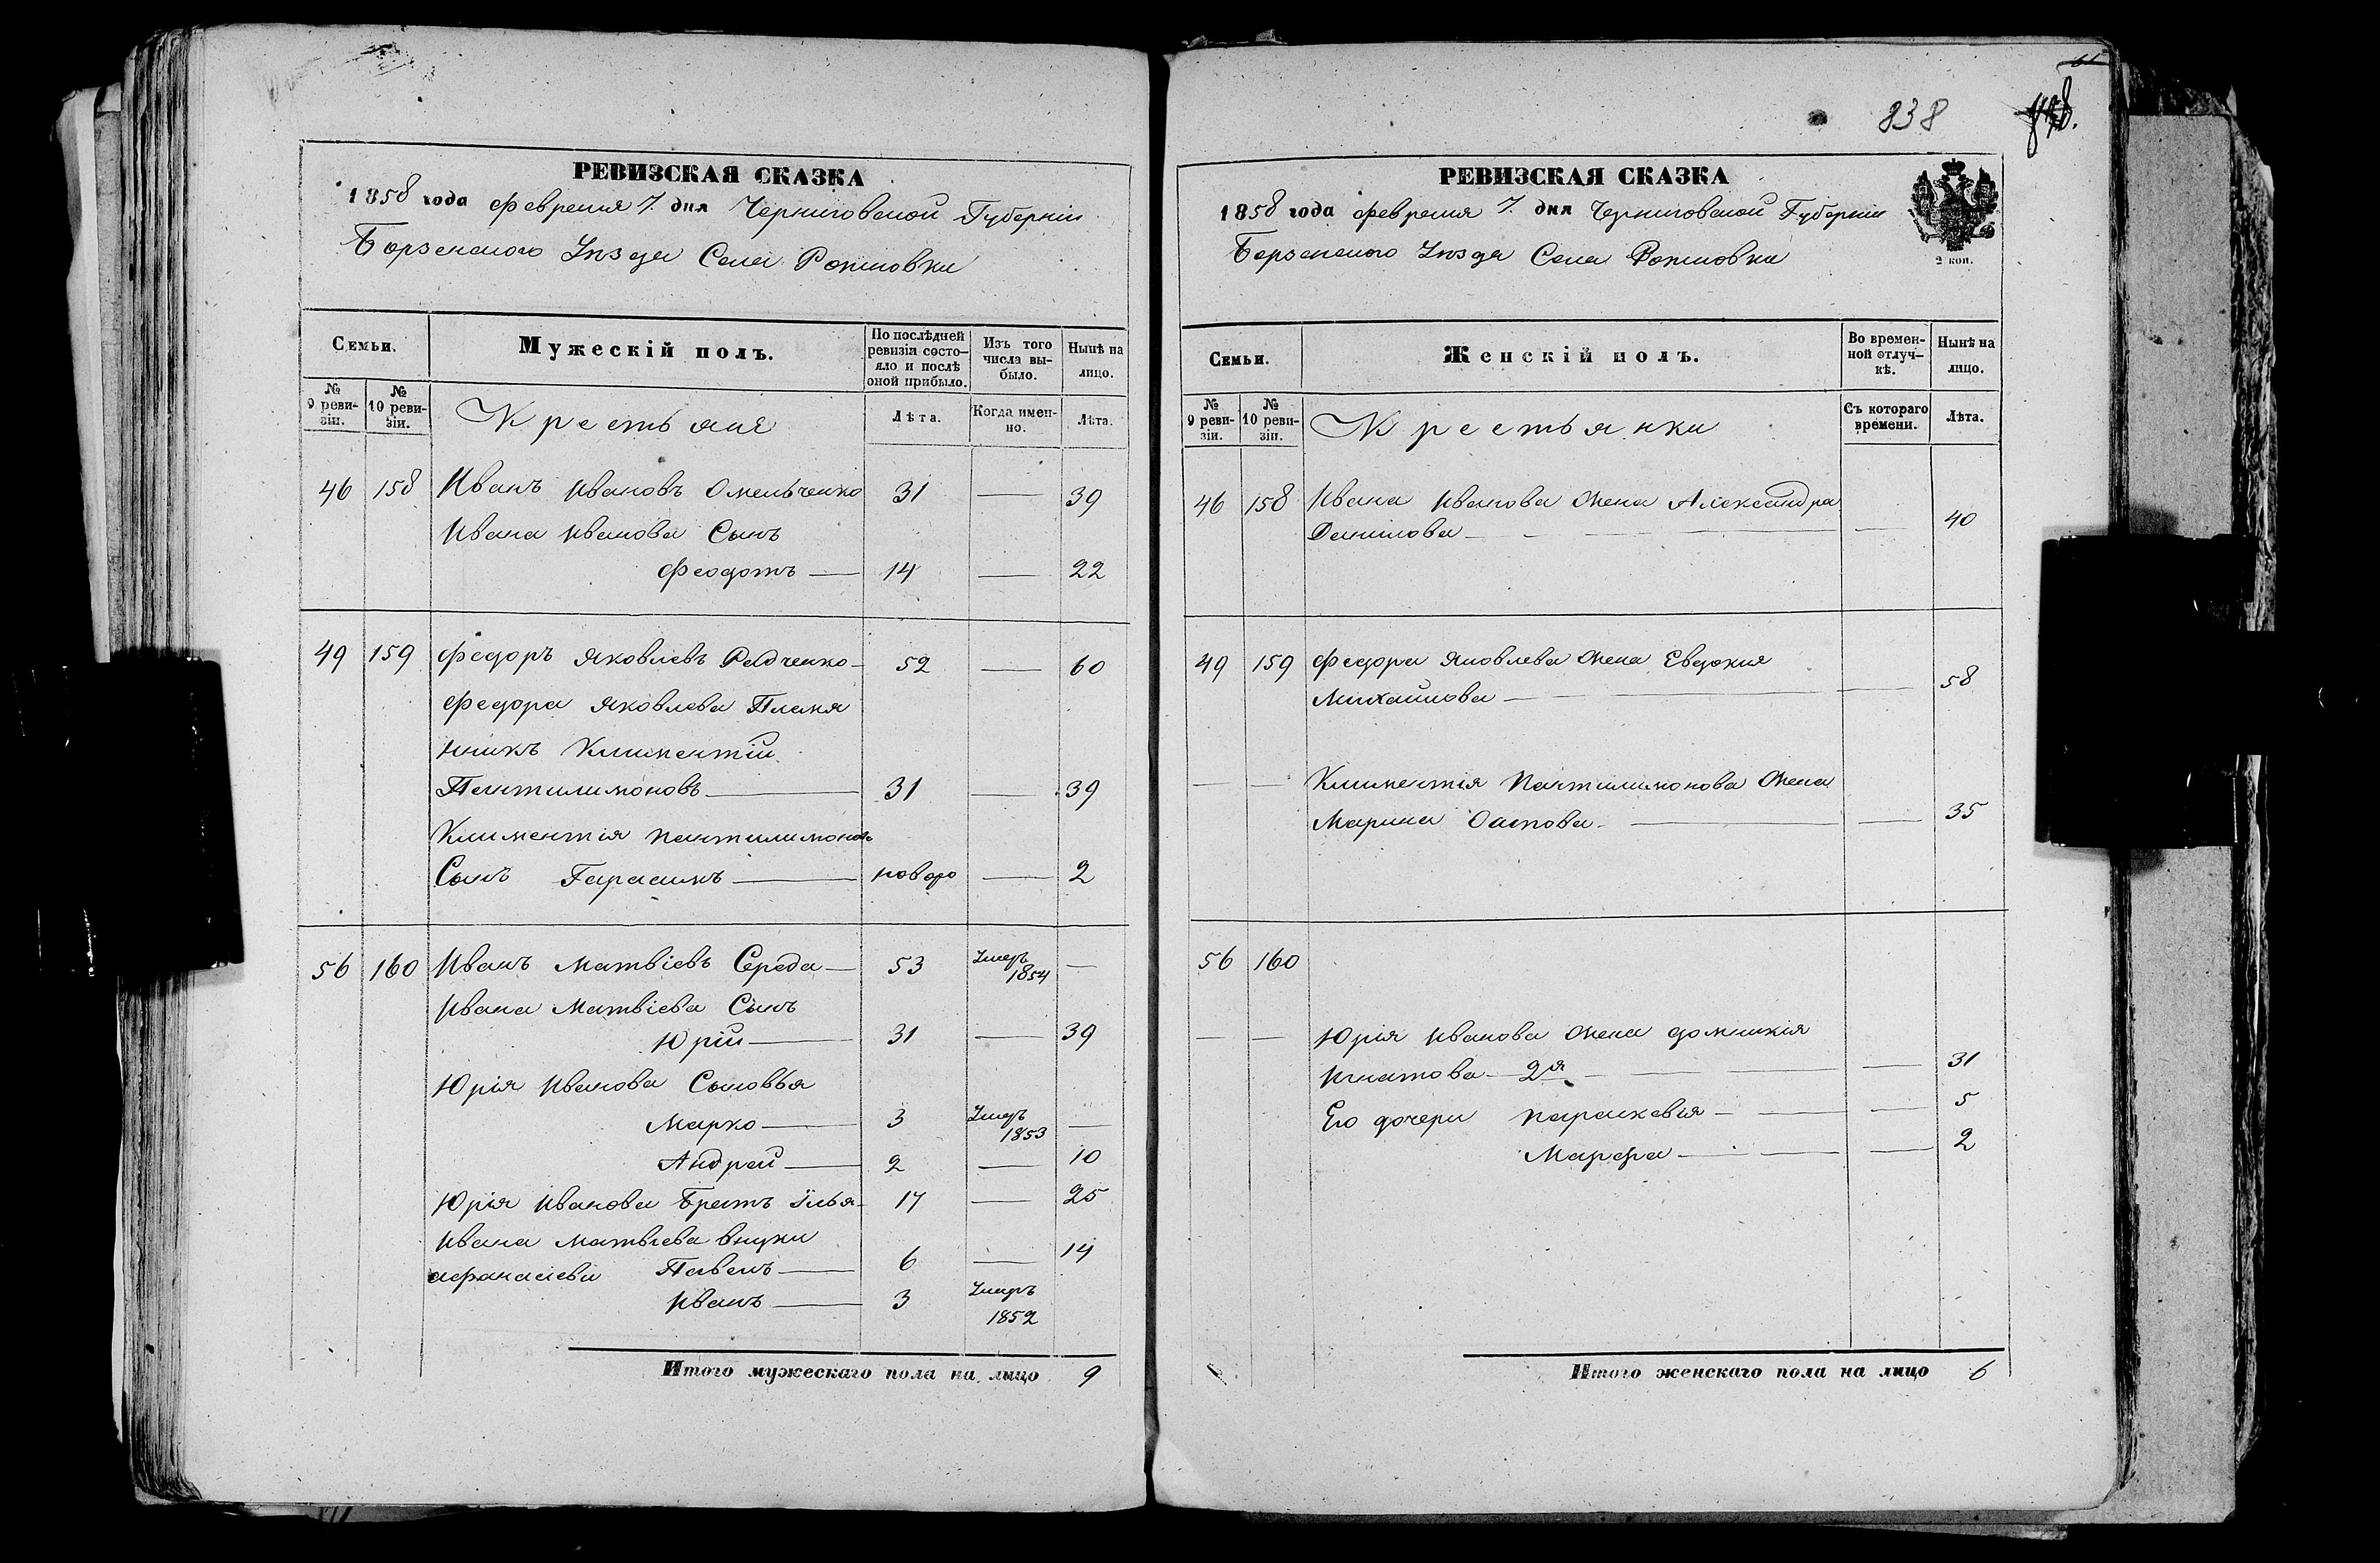 РЕВИЗСКАЯ СКАЗКА
1858 года Февраля 7. дня Черниговской Губерніи
Борзенского Уѣзда Села Рожновки
Семьи.
Мужескій полъ.
По послѣдней ревизіи состо-
яло и послѣ
оной прибыло.
Изъ того
числа вы-
было.
Нынѣ на
лицо.
№
9 реви-
зіи.
№
10 реви-
зіи.
Крестьяне
Лѣта.
Когда имен-
но.
Лѣта.
46 158 Иванъ Ивановъ Омельченко 31 — 39
Ивана Иванова Сынъ
Феодотъ — 14 — 22
49 159 Федоръ Яковлевъ — 52 — 60
Федора Яковлева Племя
нникъ Климентій
Пантилимоновъ — 31 — 39
Климентія Пантилимонова
Сынъ Гарасимъ — новоро — 2
56 160 Иванъ Матвіевъ Середа — 53 Умеръ 1854 —
Ивана Матвіева Сынъ
Юрій — 31 — 39
Юрія Иванова Сыновья
Марко — 3 Умеръ 1853 —
Андрей — 2 — 10
Юрія Иванова Братъ Илья — 17 — 25
Ивана Матвіева внуки
Афанасіеви Павелъ — 6 — 14
Иванъ — 3 Умеръ 1852
Итого мужескаго пола на лицо 9
838
РЕВИЗСКАЯ СКАЗКА
1858 года Февраля 7. дня Черниговской Губерніи
Борзенского Уѣзда Села Рожновки
2 коп.
Семьи.
Женскій полъ.
Во времен-
ной отлуч-
кѣ.
Нынѣ на
лицо.
№
9 реви-
зіи.
№
10 реви-
зіи.
Крестьянки
Съ котораго
времени.
Лѣта.
46 158 Ивана Иванова Жена Александра
Данилова — — 40
49 159 Федора Яковлева Жена Евдокия
Михайлова — — 58
— — Климентія Пантилимонова Жена
Марина Осипова — — 35
56 160
— — Юрія Иванова Жена Домникія
Игнатова 2я — — 31
Его дочери Параскевія — — 5
Марфа — — 2
Итого женскаго пола на лицо 6